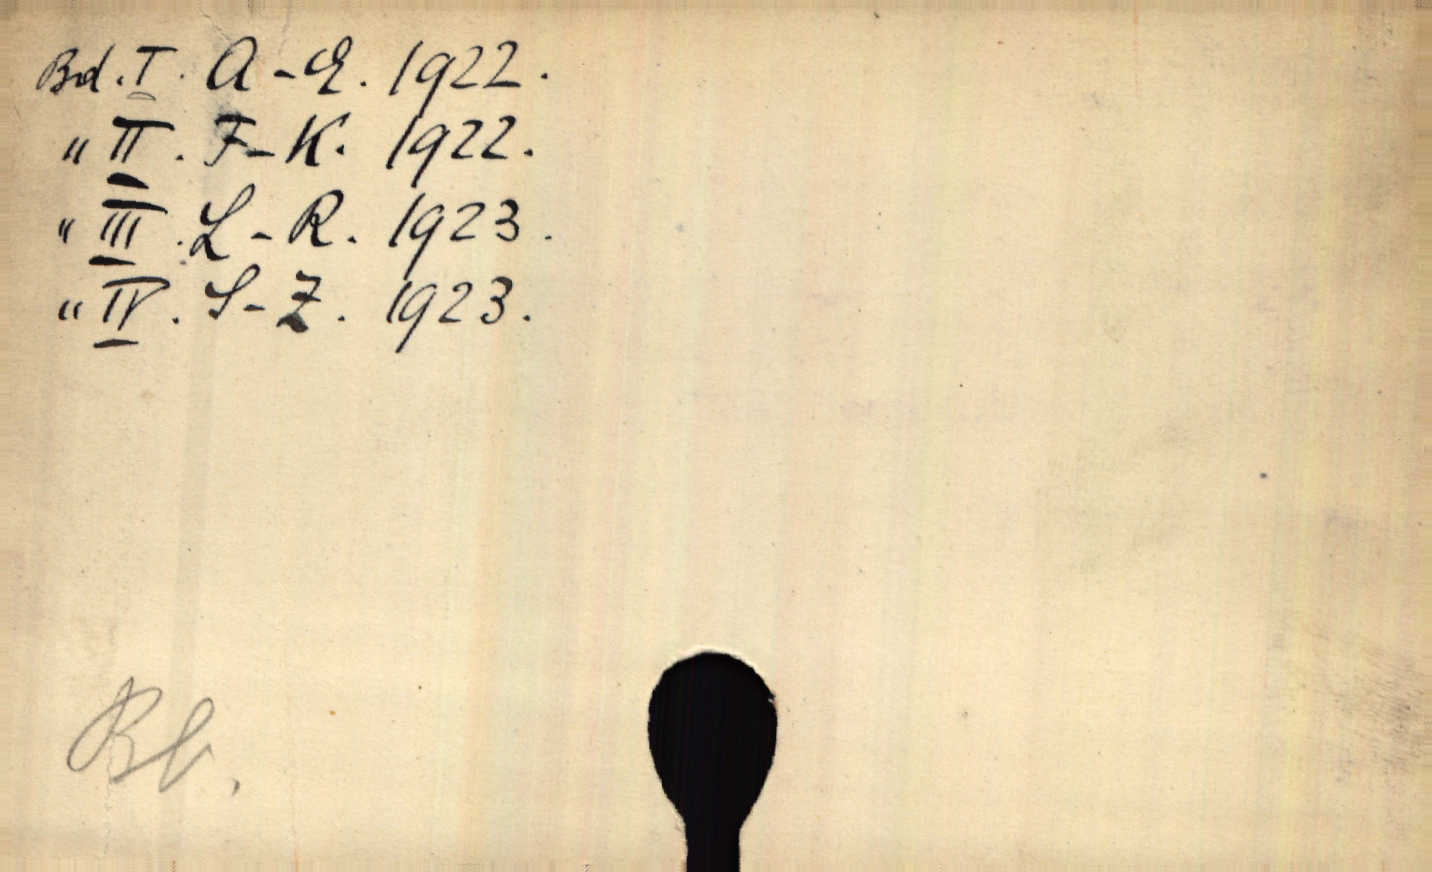 Bd. I. A - E. 1922.
" II. F - K. 1922.
" III. L - R. 1923.
" IV. S - Z. 1923.
Bb.